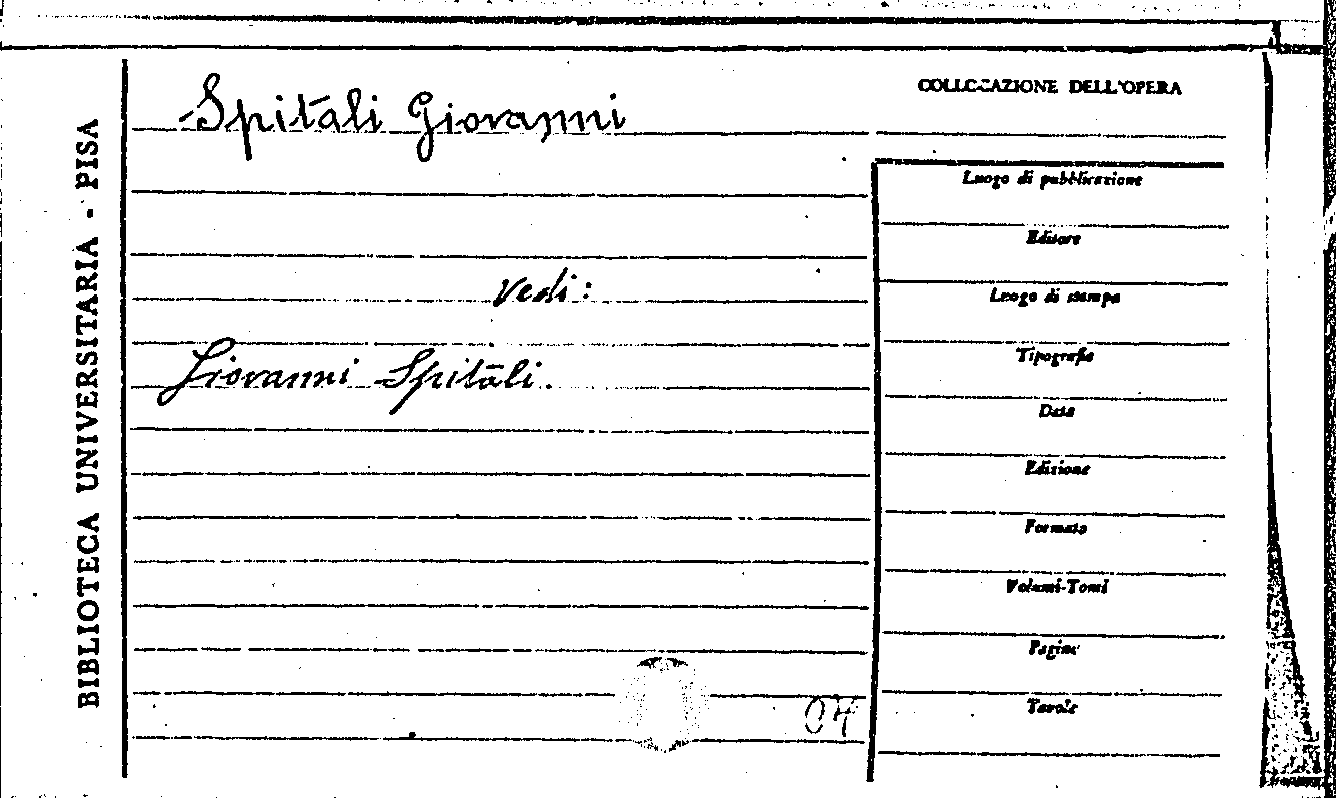 BIBLIOTECA UNIVERSITARIA - PISA
Spitali Giovanni
vedi:
Giovanni Spitali.
04
COLLOCAZIONE DELL'OPERA
Luogo di pubblicazione
Editore
Luogo di stampa
Tipografia
Data
Edizione
Formato
Volumi-Tomi
Pagine
Tavole